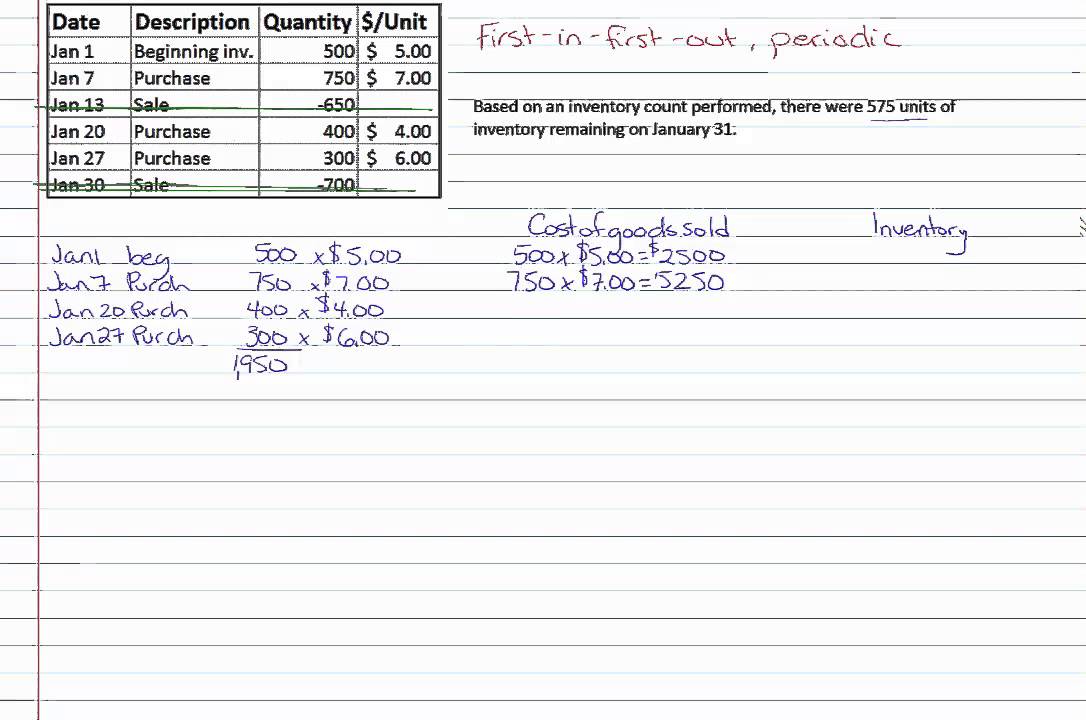 Date Description Quantity $/Unit
Jan 1 Beginning inv. 500 $ 5.00
Jan 7 Purchase 750 $ 7.00
Jan 13 Sale -650
Jan 20 Purchase 400 $ 4.00
Jan 27 Purchase 300 $ 6.00
Jan 30 Sale -700
First-in-first-out, periodic
Based on an inventory count performed, there were 575 units of
inventory remaining on January 31.
Cost of goods sold Inventory
Jan 1 beg 500 x $5.00 500 x $5.00 = $2500
Jan 7 Purch 750 x $7.00 750 x $7.00 = 5250
Jan 20 Purch 400 x $4.00
Jan 27 Purch 300 x $6.00
1,950